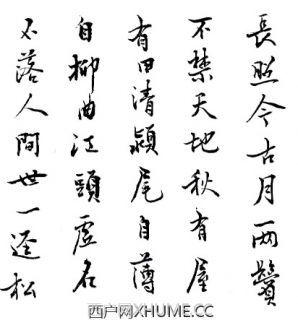 長照今古月一兩鬢
不禁天地秋有屋
有田清潁尾自蓴
自柳曲江頭虛名
不落人間世一逕松
西户网XHUME.CC